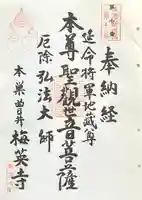 奉納経
延命将軍地蔵尊
本尊聖観世音菩薩
厄除弘法大師
本巣曽井
梅英寺